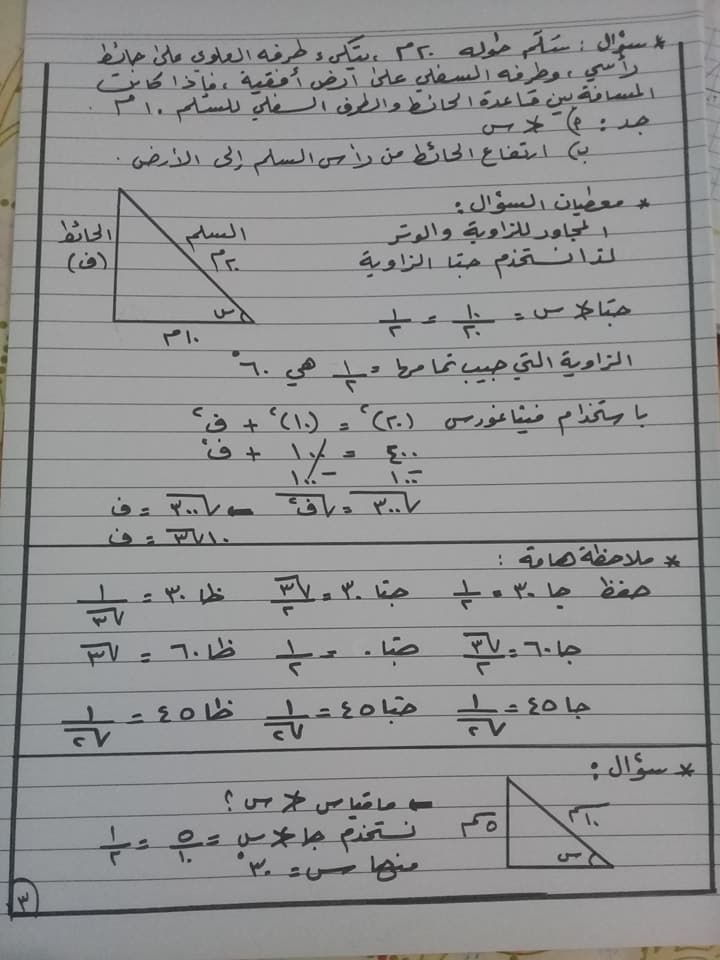 * سؤال : سُلَّم طوله ٢٠م ، يتكىء طرفه العلوي على حائط
رأسي ، وطرفه السفلي على أرض أفقية ، فإذا كانت
المسافة بين قاعدة الحائط والطرف السفلي للسلم ١٠م
جد : أ) ∢ س
ب) ارتفاع الحائط من رأس السلم إلى الأرض .
* معطيات السؤال :
المجاور للزاوية والوتر
لذا نستخدم جتا الزاوية
الحائط
(ف)
السلم
٢٠م
س
١٠م
جتا ∢ س = ١٠/٢٠ = ١/٢
الزاوية التي جيب تمامها = ١/٢ هي ٦٠°
باستخدام فيثاغورس (٢٠)٢ = (١٠)٢ + ف٢
٤٠٠ = ١٠٠ + ف٢
-١٠٠ -١٠٠
√٣٠٠ = √ف٢ ← √٣٠٠ = ف
١٠√٣ = ف
* ملاحظة هامة :
حفظ جا ٣٠ = ١/٢ جتا ٣٠ = √٣/٢ ظا ٣٠ = ١/√٣
جا ٦٠ = √٣/٢ جتا ٠ = ١/٢ ظا ٦٠ = √٣
جا ٤٥ = ١/√٢ جتا ٤٥ = ١/√٢ ظا ٤٥ = ١/√٢
* سؤال :
← ما قياس ∢ س ؟
نستخدم جا ∢ س = ٥/١٠ = ١/٢
منها س = ٣٠°
٥سم
١٠سم
س
٣